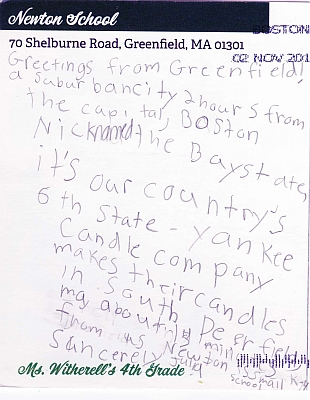 Newton School
70 Shelburne Road, Greenfield, MA 01301
BOSTON
02 NOV 201
Greetings from Greenfield!
a suburban city 2 hours from
the capital, Boston
Nicknamed the Baystate,
it's our country's
6th State - yankee
Candle company
makes their candles
in South Deerfield
ma about 14 min
from us Newton
Sancerely
school mail
Ms. Witherell's 4th Grade